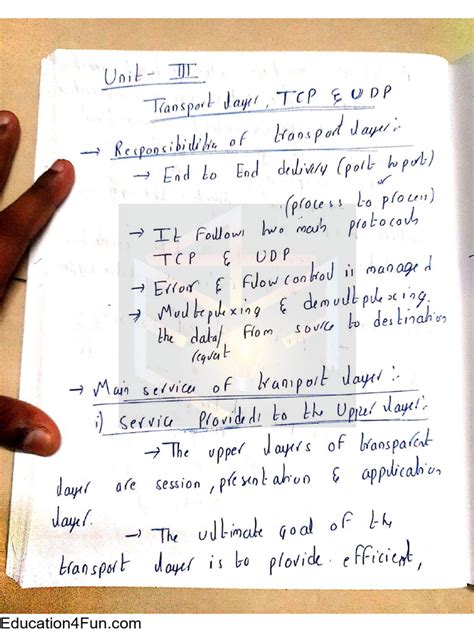 Unit - III
Transport layer, TCP & UDP
→ Responsibilities of transport layer :-
→ End to End delivery (port to port)
(process to process)
→ It follows two main protocols
TCP & UDP
→ Error & Flow control is managed
→ Multeplexing & demulteplexing.
the data/ from source to destination
request
→ Main services of transport layer :-
i) Service Provided to the Upper layer :-
→ The upper layers of transparent
layer are session, presentation & application
layer.
→ The ultimate goal of the
transport layer is to provide efficient,
Education4Fun.com